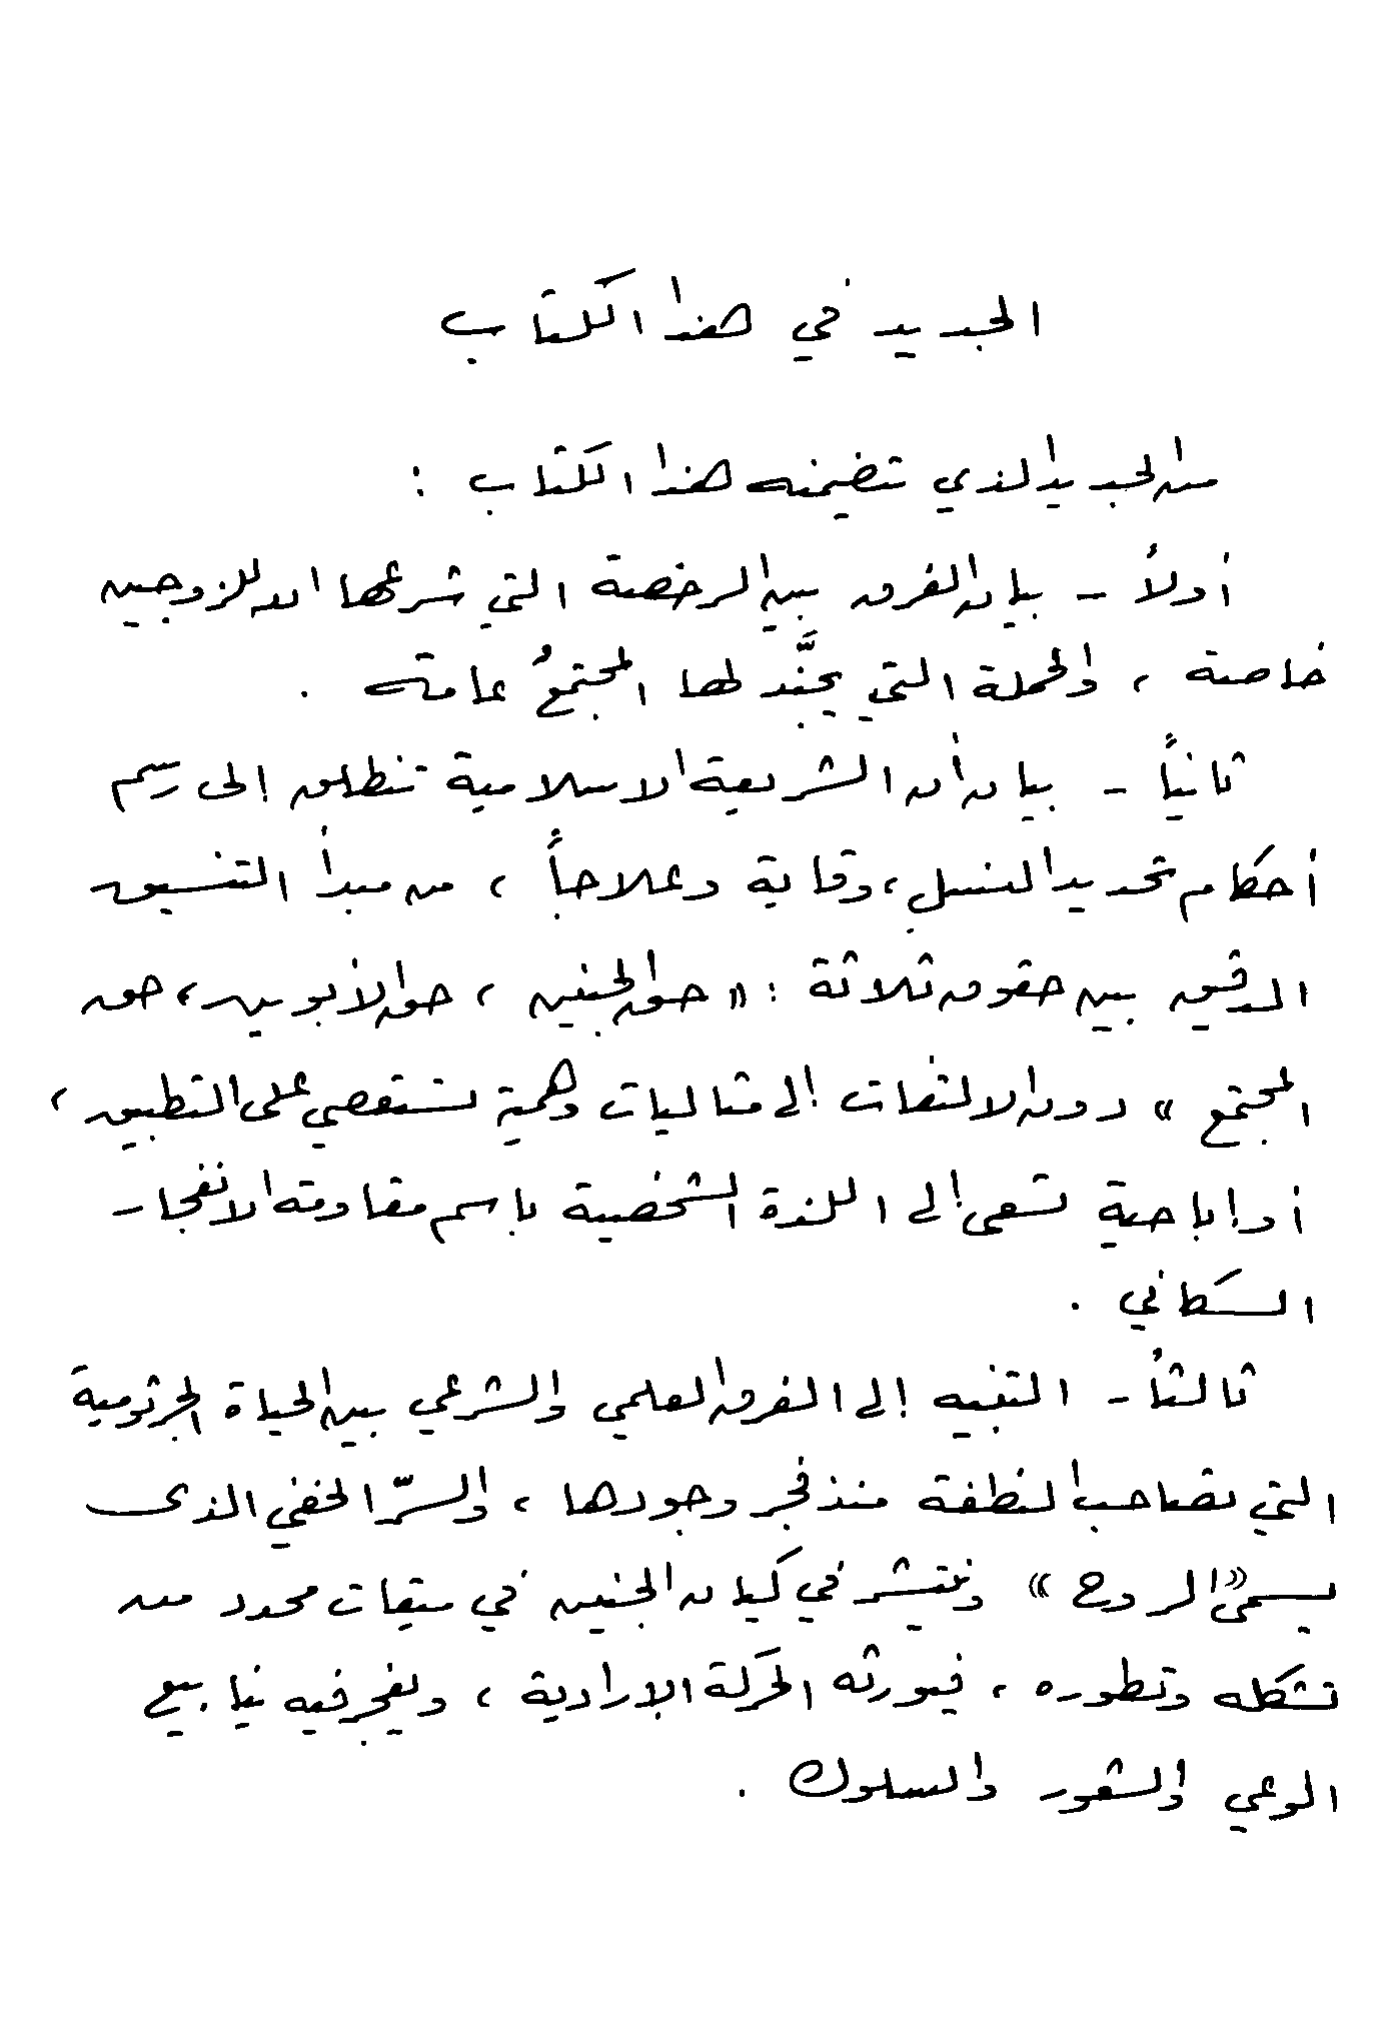 الجديد في هذا الكتاب
من الجديد الذي تضمنه هذا الكتاب :
أولاً - بيان الفرق بين الرخصة التي شرعها الله للزوجين
خاصة ، والحملة التي يجنَّد لها المجتمعُ عامة .
ثانياً - بيان أن الشريعة الاسلامية تنطلق إلى رسم
أحكام تحديد النسل ، وقاية وعلاجاً ، من مبدأ التنسيق
الدقيق بين حقوق ثلاثة : « حق الجنين ، حق الأبوين ، حق
المجتمع » دون الالتفات إلى مثاليات وهمية تستعصي على التطبيق ،
أو إباحية تسعى إلى اللذة الشخصية باسم مقاومة الانفجار
السكاني .
ثالثاً - التنبيه إلى الفرق العلمي والشرعي بين الحياة الجرثومية
التي تصاحب النطفة منذ فجر وجودها ، والسرّ الخفي الذي
يسمى « الروح » وينتشر في كيان الجنين في ميقات محدد من
تشكله وتطوره ، فيورثه الحركة الإرادية ، ويفجر فيه ينابيع
الوعي والشعور والسلوك .